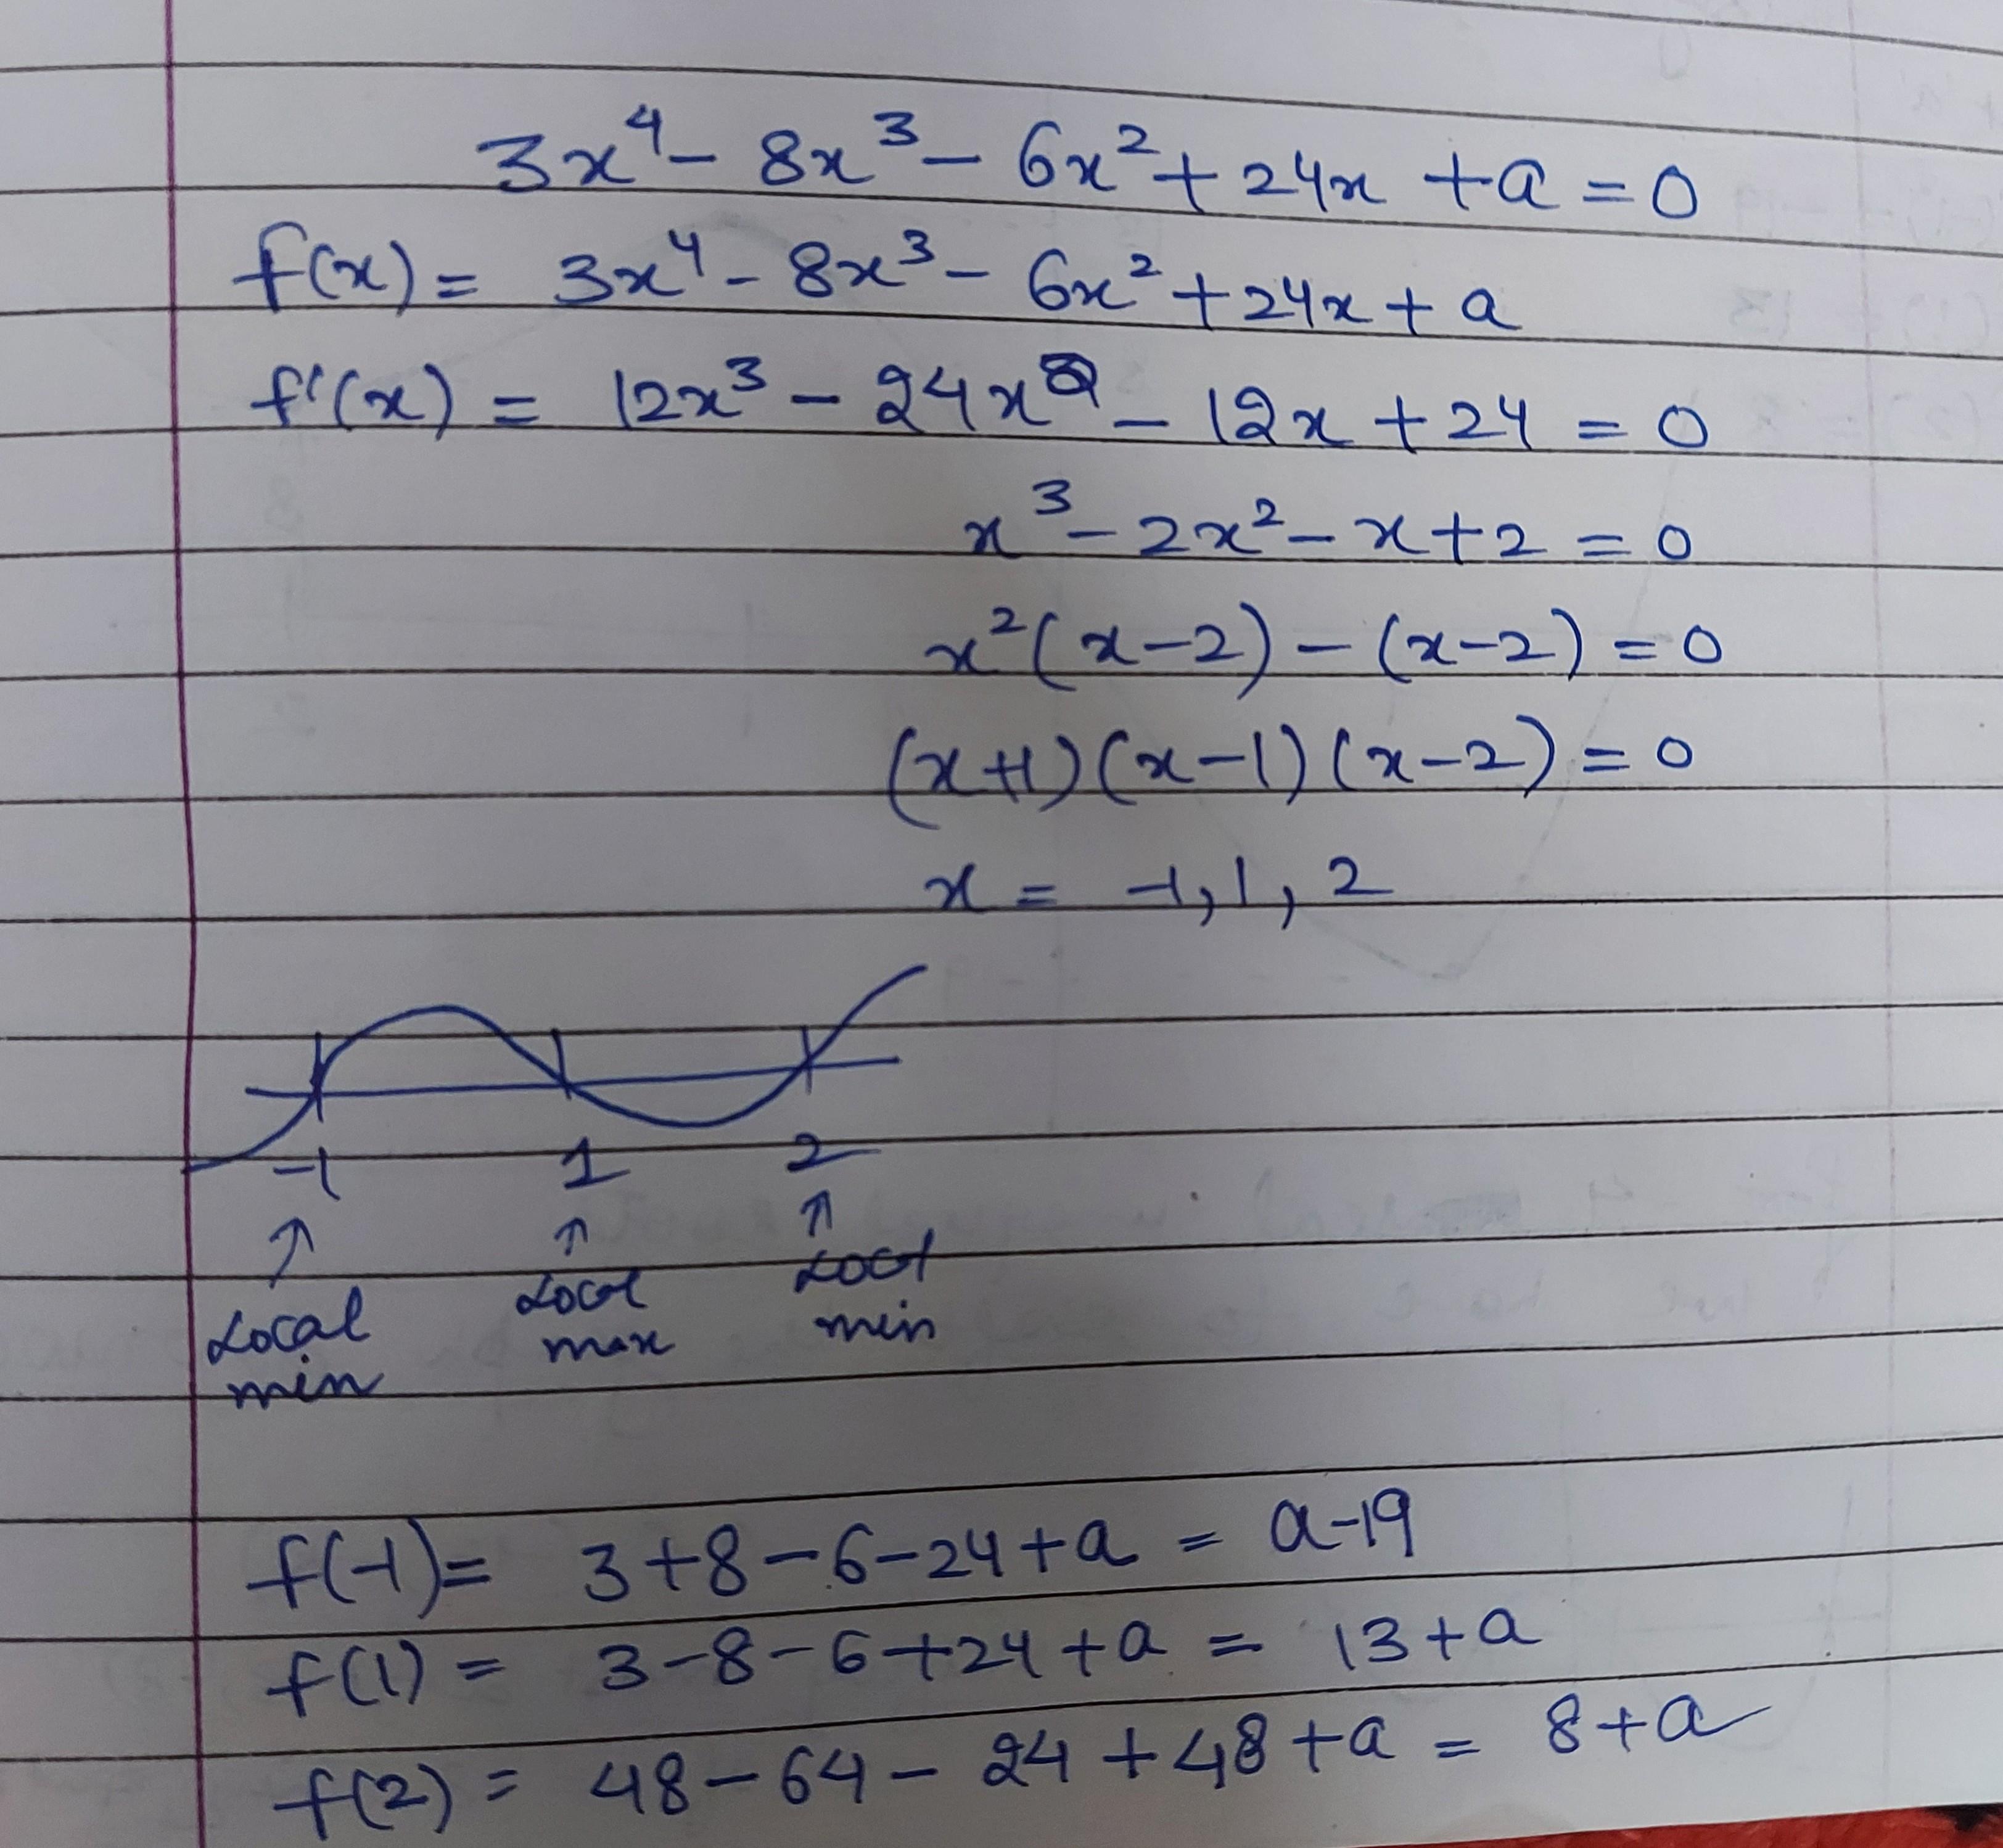 3x⁴ - 8x³ - 6x² + 24x + a = 0
f(x) = 3x⁴ - 8x³ - 6x² + 24x + a
f'(x) = 12x³ - 24x² - 12x + 24 = 0
x³ - 2x² - x + 2 = 0
x²(x-2) - (x-2) = 0
(x+1)(x-1)(x-2) = 0
x = -1, 1, 2
-1 1 2
↑ ↑ ↑
Local Local Local
min max min
f(-1) = 3+8-6-24+a = a-19
f(1) = 3-8-6+24+a = 13+a
f(2) = 48-64-24+48+a = 8+a